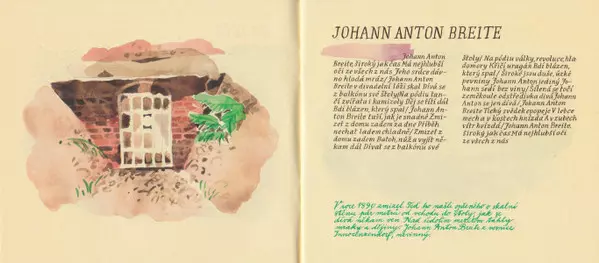 JOHANN ANTON BREITE
Johann Anton
Breite, široký jak čas Má nejhlubší
oči ze všech z nás Jeho srdce dáv-
no hlodá mráz/ Johann Anton
Breite v divadelní lóži skal Dívá se
z balkónu své štoly Na pódiu tan-
čí zvířata i kamizoly Děj se řítí dál
Bdí blázen, který spal/ Johann An-
ton Breite tuší, jak je snadné Zmi-
zet z domu zadem za dne Příběh
nechat ladem chladně/ Zmizet z
domu zadem Batoh, nůž a vyjít ně-
kam dál Dívat se z balkónu své
štoly/ Na pódiu války, revoluce, hla-
domory Křičí uragán Bdí blázen,
který spal/ Široké jsou duše, úzké
pevniny Johann Anton jediný Jo-
hann sedí bez viny/ Šíleně se točí
zeměkoule odstředivka divá Johann
Anton se jen dívá/ Johann Anton
Breite Tichý svědek epopeje V lebce
mecha v kostech hnízda A v zubech
vítr hvízdá/ Johann Anton Breite,
široký jak čas Má nejhlubší oči
ze všech z nás
V roce 1890 zmizel. Teď ho našli opřeného o skalní
stěnu pár metrů od vchodu do štoly, jak se
dívá někam ven. Nad údolím mezitím táhly
mraky a dějiny. Johann Anton Breite z vesnice
nevinný.